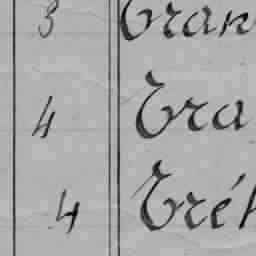 3 Tran
4 Tra
4 Tré